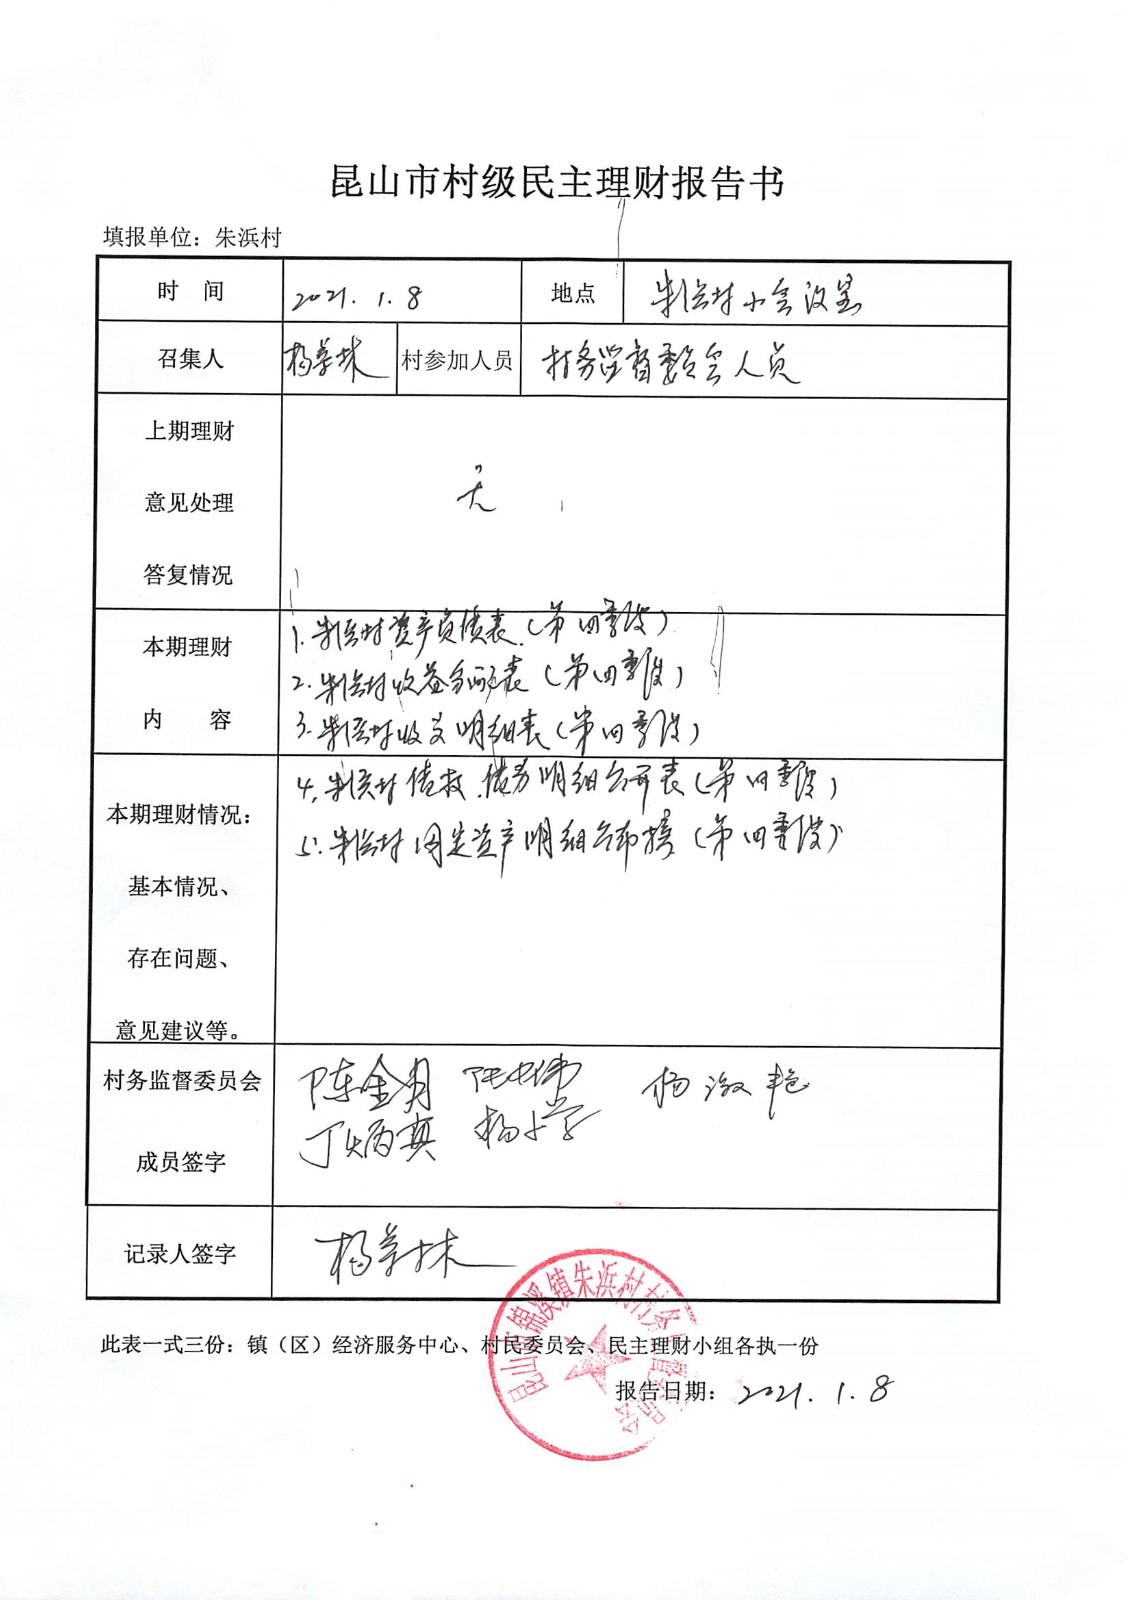 昆山市村级民主理财报告书
填报单位：朱浜村
时 间 2021.1.8 地点 朱浜村小会议室
召集人 村参加人员 村务监督委员会人员
上期理财
意见处理
答复情况
无
本期理财
内 容
1.朱浜村资产负债表（第四季度）
2.朱浜村收益分配表（第四季度）
3.朱浜村收支明细表（第四季度）
本期理财情况：
基本情况、
存在问题、
意见建议等。
4.朱浜村债权、债务明细公开表（第四季度）
5.朱浜村固定资产明细公布榜（第四季度）
村务监督委员会
成员签字
陈金男
丁炳真 杨小学
记录人签字
昆山市锦溪镇朱浜村村务监督委员会
此表一式三份：镇（区）经济服务中心、村民委员会、民主理财小组各执一份
报告日期：2021.1.8